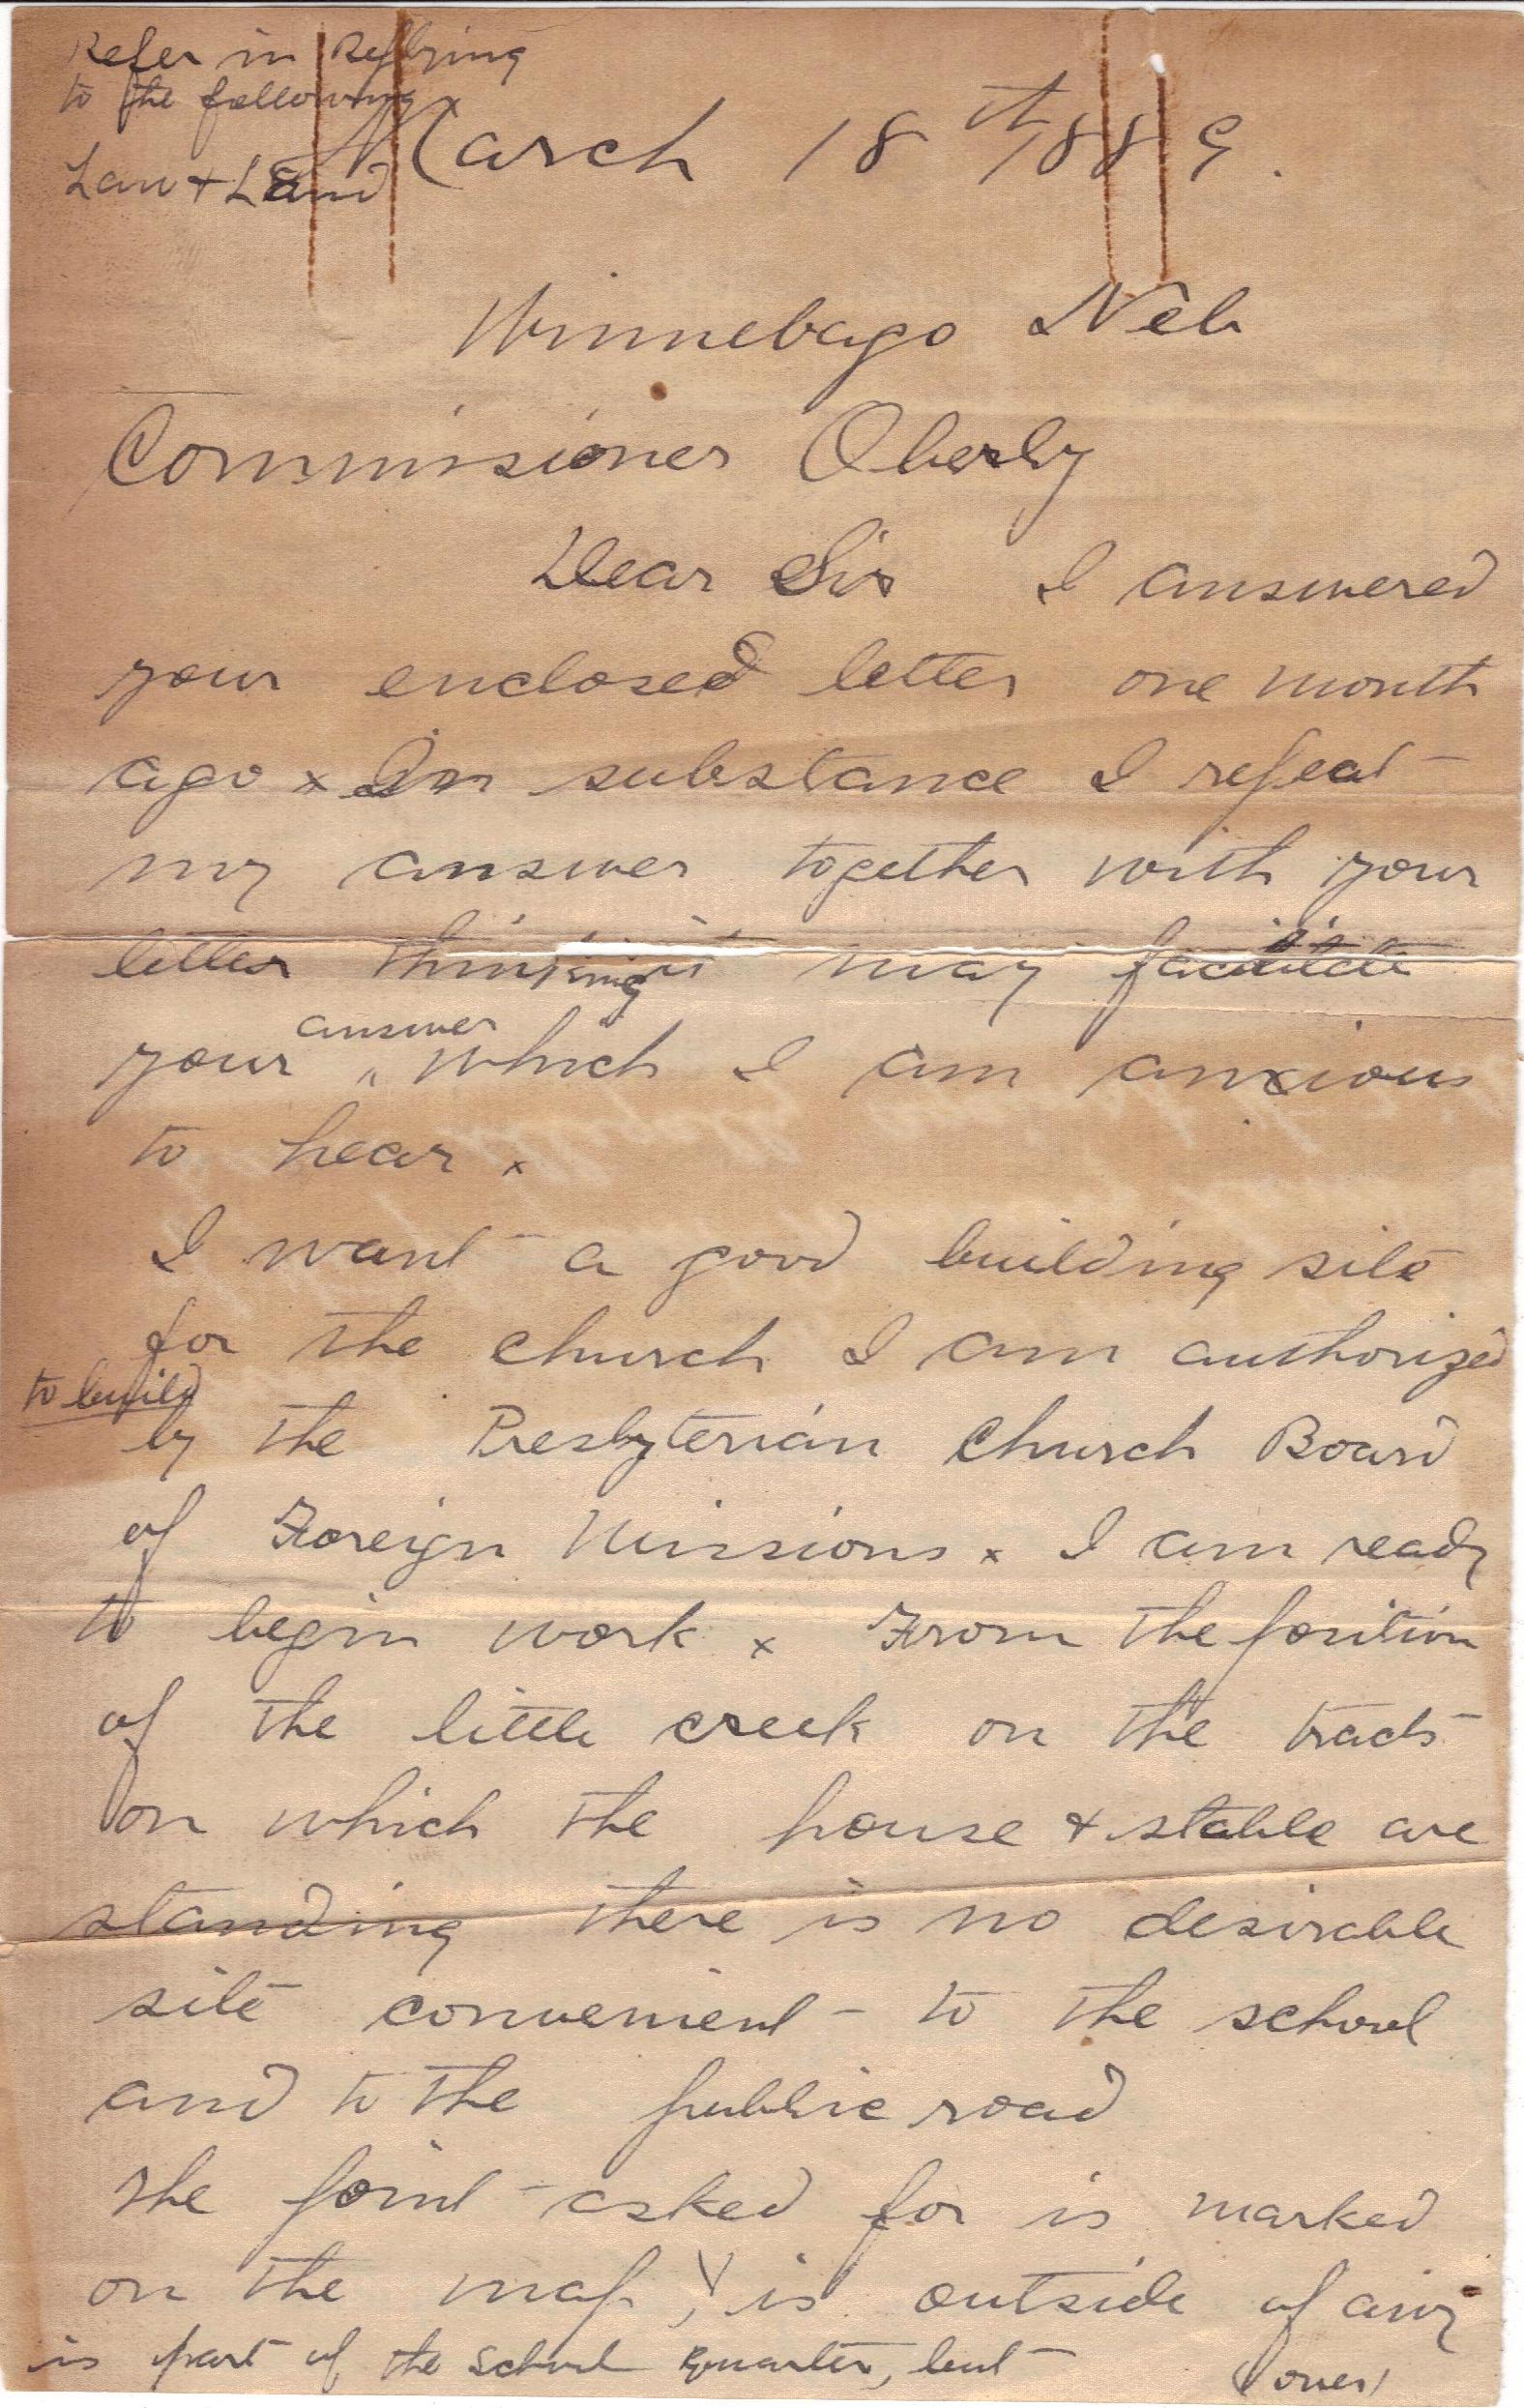 Refer in Replying
to the following
Law + Land
March 18th 1889.
Winnebago Neb
Commissioner Oberly
Dear Sir I answered
your enclosed letter one month
ago x In substance I repeat
my answer together with your
letter thinking it may facilitate
answer
your " which I am anxious
to hear x
I want a good building site
for the church I am authorized
to build
by the Presbyterian Church Board
of Foreign Missions x I am ready
to begin work x From the position
of the little creek on the tracts
on which the house + stable are
standing there is no desirable
site convenient to the school
and to the public road
The point asked for is marked
on the map, is outside of any
is part of the School Quarter, but
(over)